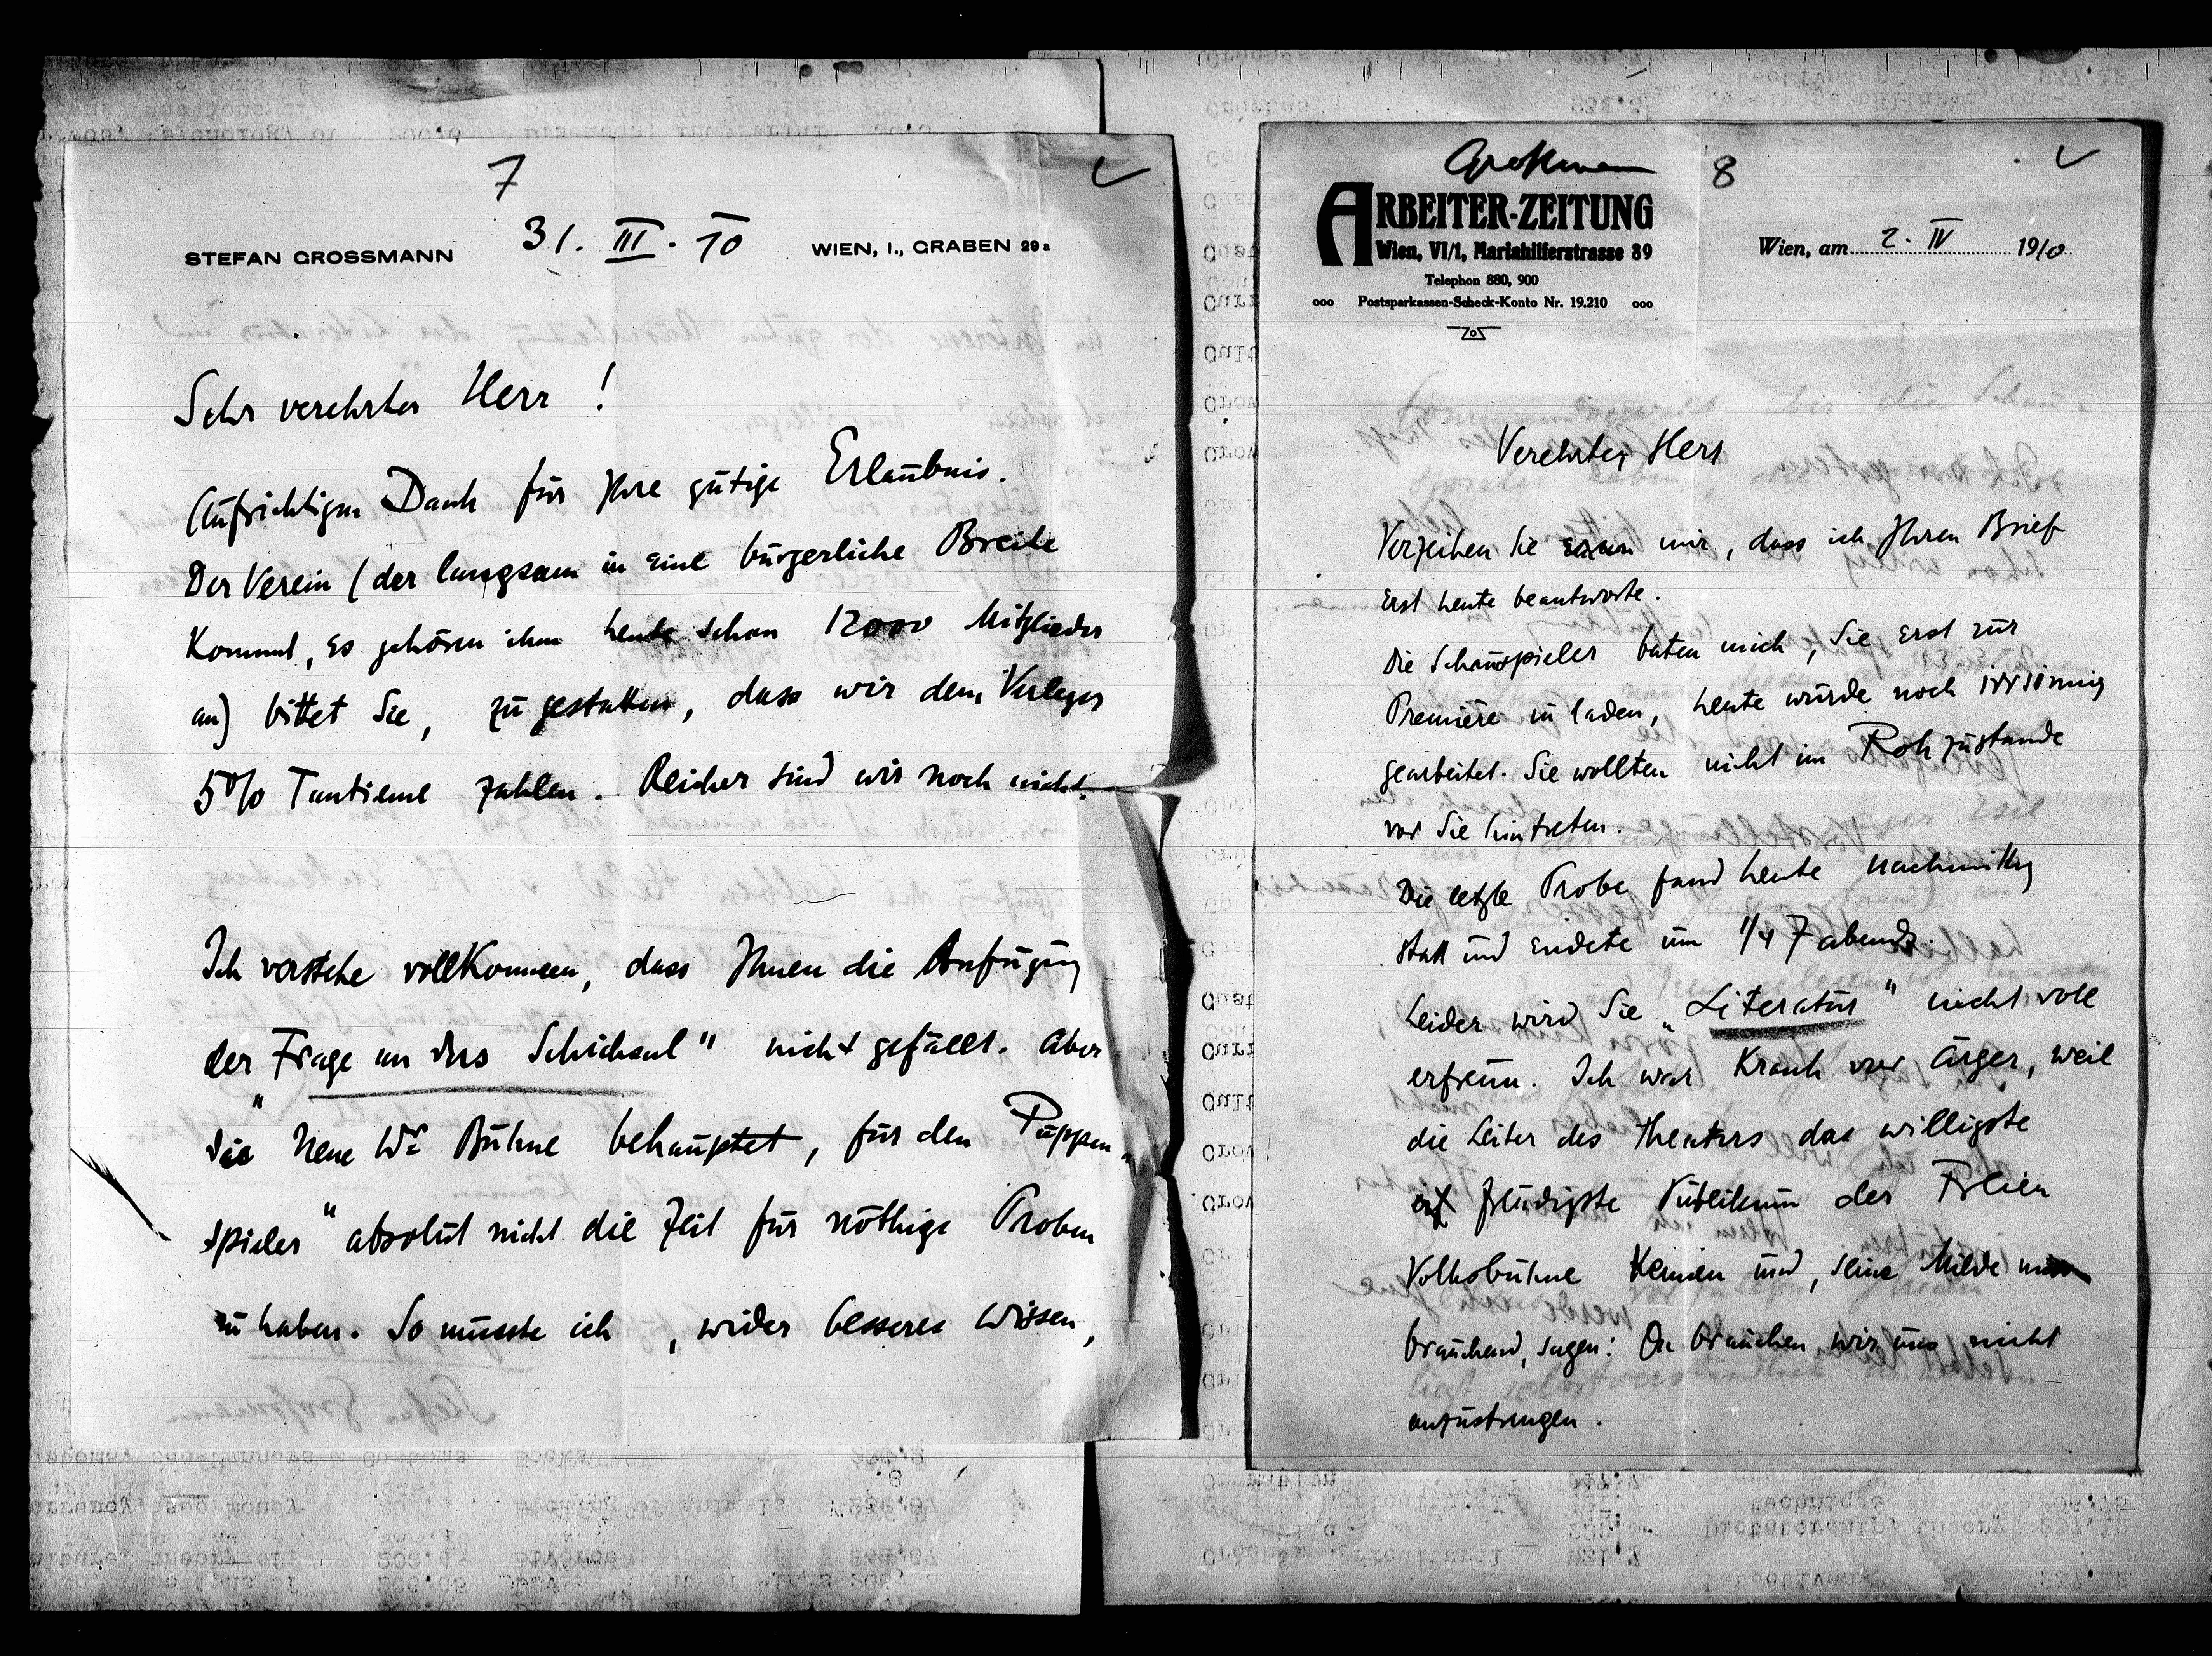 7
31. III. 10
STEFAN GROSSMANN
WIEN, I., GRABEN 29a
Sehr verehrter Herr!
Aufrichtigen Dank für Ihre gütige Erlaubnis.
Der Verein (der langsam in eine bürgerliche Breite
kommt, es gehören ihm heute schon 12000 Mitglieder
an) bittet Sie, zu gestatten, dass wir dem Verleger
5% Tantieme zahlen. Reicher sind wir noch nicht.
Ich verstehe vollkommen, dass Ihnen die Anfügung
der „Frage an das Schicksal" nicht gefällt. Aber
die Neue Wr Bühne behauptet, für den „Puppen-
spieler" absolut nicht die Zeit für nöthige Proben
zu haben. So musste ich, wider besseres Wissen,
Großmann
8
ARBEITER-ZEITUNG
Wien, VI/1, Mariahilferstrasse 89
Telephon 880, 900
ooo Postsparkassen-Scheck-Konto Nr. 19.210 ooo
Wien, am 2. IV 1910
Verehrter Herr
Verzeihen Sie mir, dass ich Ihren Brief
erst heute beantworte.
Die Schauspieler baten mich, Sie erst zur
Première zu laden, heute würde noch irrsinnig
gearbeitet. Sie wollten nicht im Rohzustande
vor Sie hintreten.
Die letzte Probe fand heute nachmittg
statt und endete um 1/4 7 abends.
Leider wird Sie „Literatur" nicht voll
erfreun. Ich war krank vor Ärger, weil
die Leiter des Theaters das willigste
freudigste Publikum der Freien
Volksbühne kennen und, seine Milde
brauchend, sagen: Da brauchen wir uns nicht
anzustrengen.